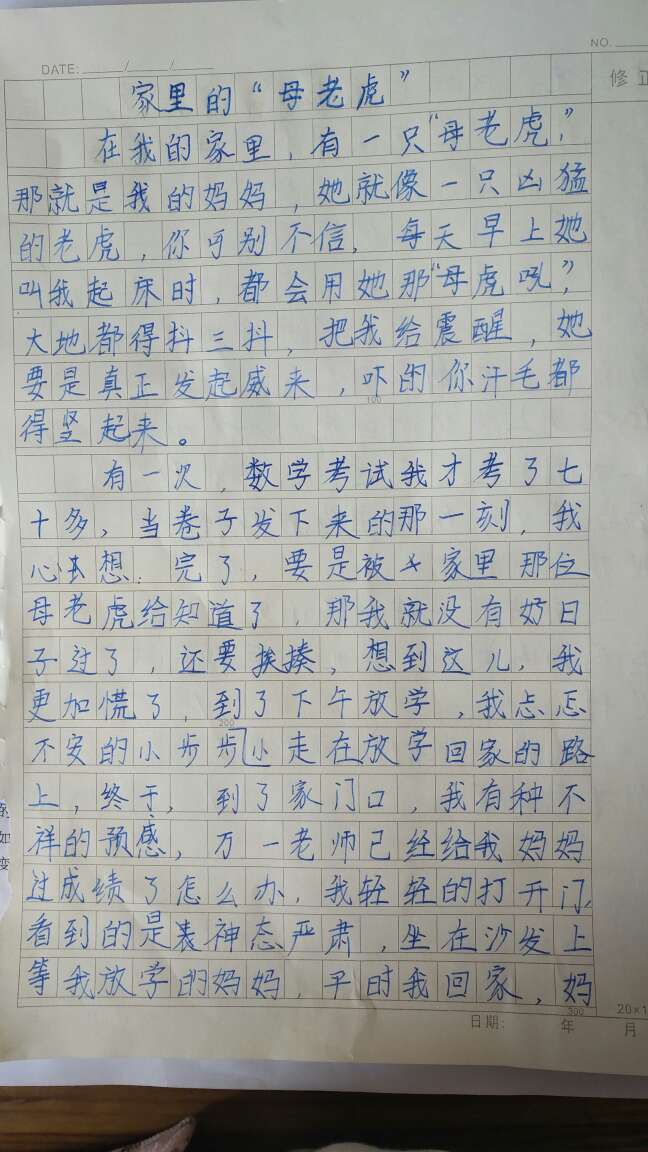 DATE: / /
NO.
修正
家里的“母老虎”
在我的家里，有一只“母老虎”，
那就是我的妈妈，她就像一只凶猛
的老虎，你可别不信，每天早上她
叫我起床时，都会用她那“母虎吼”，
大地都得抖三抖，把我给震醒，她
要是真正发起威来，吓的你汗毛都
100
得竖起来。
有一次，数学考试我才考了七
十多，当卷子发下来的那一刻，我
心里想：完了，要是被家里那位
母老虎给知道了，那我就没有好日
子过了，还要挨揍，想到这儿，我
更加慌了，到了下午放学，我忐忑
200
不安的小步步小走在放学回家的路
上，终于，到了家门口，我有种不
祥的预感，万一老师已经给我妈妈
过成绩了怎么办，我轻轻的打开门，
看到的是神态严肃，坐在沙发上
等我放学的妈妈，平时我回家，妈
300
20×1
日期： 年 月